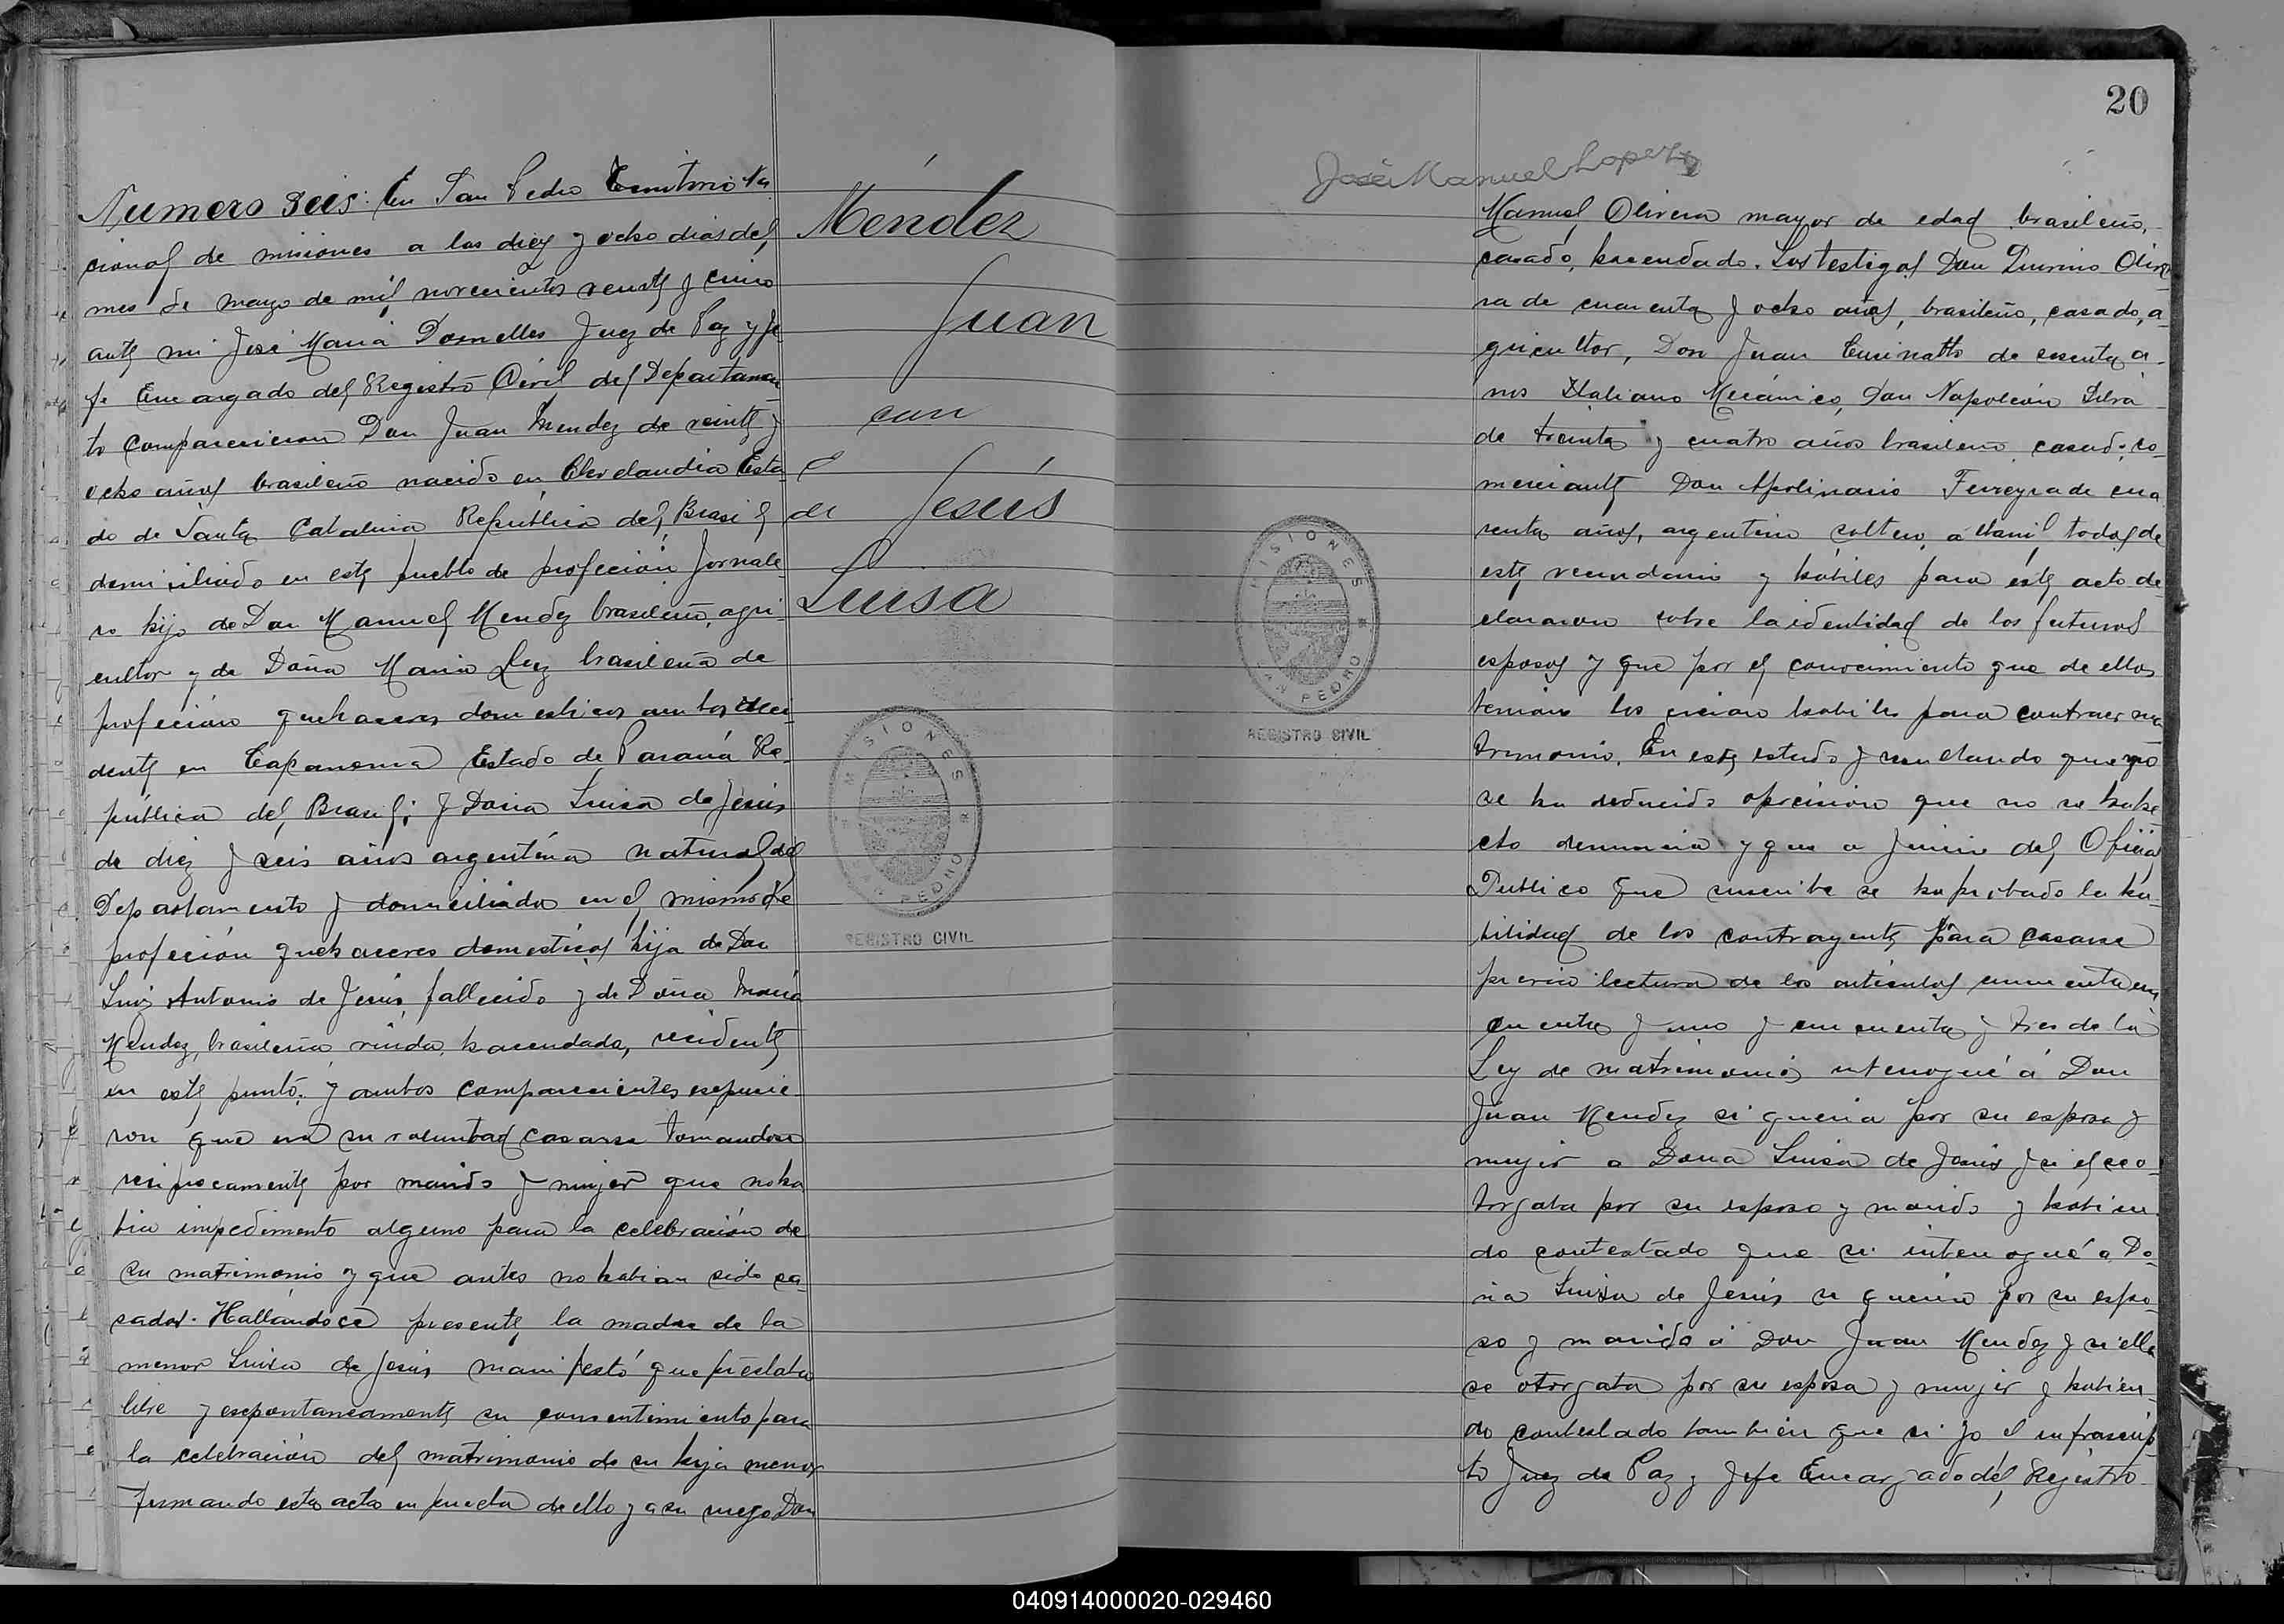 Numero seis: En San Pedro Territorio Na
cional de misiones a los diez y ocho dias del
mes de mayo de mil novecientos veinte y cinco
ante mi José Maria Dornelles Juez de Paz y Je
fe Encargado del Registro Civil del Departamen
to comparecieron Don Juan Mendez de veinte y
ocho años brasileño nacido en Clevelandia Esta
do de Santa Catalina República del Brasil
domiciliado en este pueblo de profeción jornale-
ro hijo de Don Manuel Mendez brasileño, agri-
cultor y de Doña Maria Luz brasileña de
profeción quehaceres domesticos ambos
dente en Estado de Paraná Re-
pública del Brasil; y Doña Luisa de Jesús
de diez y seis años argentina natural del
Departamento y domiciliada en el mismo de
profeción quehaceres domesticos hija de Don
Luis Antonio de Jesus, fallecido y de Doña Maria
Mendez, brasileña viuda, hacendada, recidente
en este punto; y ambos comparecientes espucie-
ron que era su voluntad casarse tomandose
reciprocamente por marido y mujer que no ha
bia impedimento alguno para la celebración de
su matrimonio y que antes no habian sido ca-
sados. Hallándoce presente la madre de la
menor Luisa de Jesus manifestó que prestaba
libre y esepontaneamente su consentimiento para
la celebración del matrimonio de su hija menor
firmando esta acta en prueba de ello y a su ruego Don
Méndez
Juan
con
de Jesús
Luisa
MISIONES
SAN PEDRO
REGISTRO CIVIL
20
José Manuel Lopez
Manuel Olivera mayor de edad brasileño,
casado, hacendado. Los testigos Don Quirino Olive
ra de cuarenta y ocho años, brasileño, casado, a-
gricultor, Don Juan de sesenta a-
ños Italiano Mecánico, Don Napoleón Silva
de treinta y cuatro años brasileño casado, co-
merciante Don Apolinario Ferreyra de cua
renta años, argentino soltero, albañil todos de
este vecindario y hábiles para este acto de
clararon sobre la identidad de los futuros
esposos y que por el conocimiento que de ellos
tenian los creian habiles para contraer ma
trimonio. En este estado y resultando que no
se ha deducido opocicion que no se ha he-
cho denuncia y que a juicio del Oficial
Publico que suscribe se ha probado la ha-
bilidad de los contrayente para casarse
previa lectura de los articulos cincuenta
cuenta y uno y cincuenta y tres de la
Ley de matrimonio interrogué á Don
Juan Mendez si queria por su esposa y
mujer a Doña Luisa de Jesus y si el se o-
torgaba por su esposo y marido y habien
do contestado que si interrogué a Do-
ña Luisa de Jesús si queria por su espo-
so y marido á Don Juan Mendez y si ella
se otorgaba por su esposa y mujer y habien-
do contestado tambien que si yo el infrascrip
to Juez de Paz y Jefe Encargado del Registro
MISIONES
SAN PEDRO
REGISTRO CIVIL
040914000020-029460